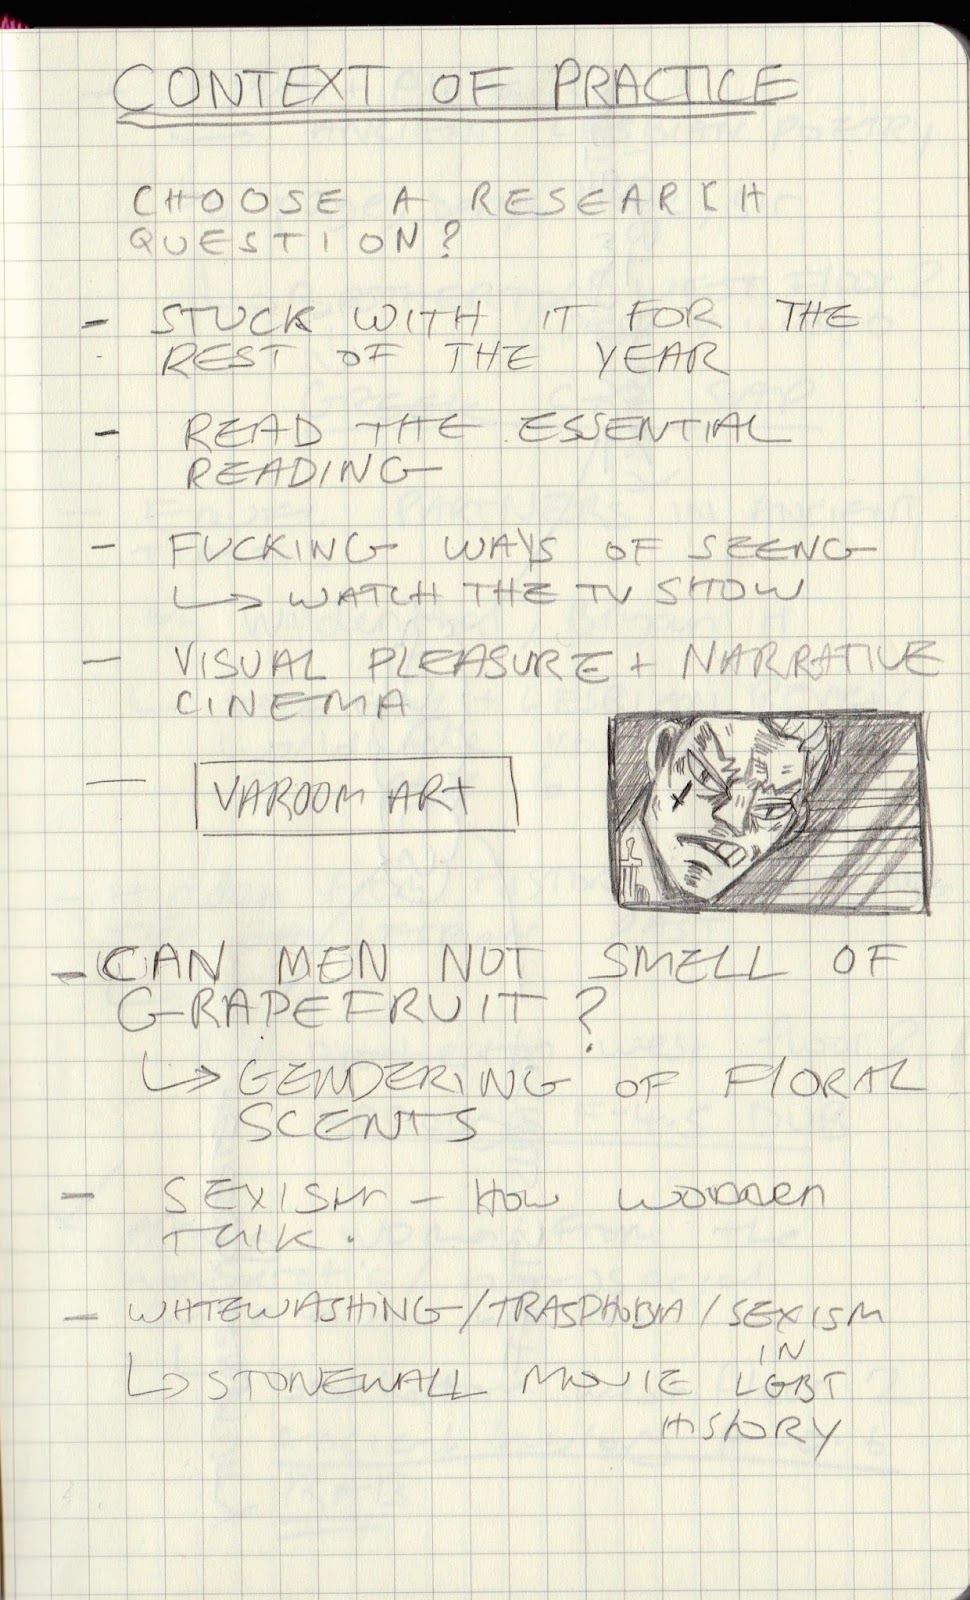 CONTEXT OF PRACTICE
CHOOSE A RESEARCH
QUESTION?
- STUCK WITH IT FOR THE
REST OF THE YEAR
- READ THE ESSENTIAL
READING
- FUCKING WAYS OF SEENG
↳ WATCH THE TV SHOW
- VISUAL PLEASURE + NARRATIVE
CINEMA
- VAROOM ART
- CAN MEN NOT SMELL OF
GRAPEFRUIT?
↳ GENDERING OF FLORAL
SCENTS
- SEXISM - HOW WOMEN
TALK.
- WHTEWASHING/TRASPHOBIA/SEXISM
IN
↳ STONEWALL MOVIE LGBT
HISTORY